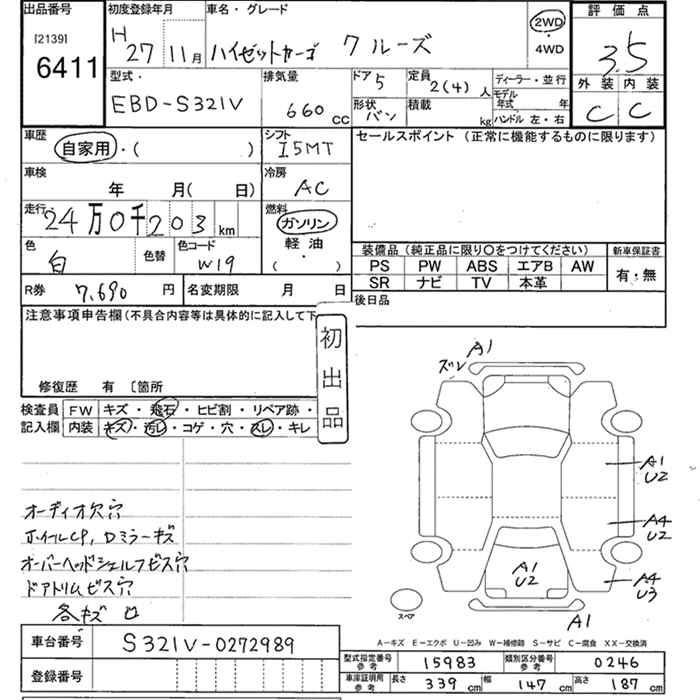 出品番号 初度登録年月 車名・グレード 評価点
[2139] 6411 H 27 11月 ハイゼットカーゴ クルーズ 2WD ・ 4WD 3.5
型式・ 排気量 ドア 5 定員 2(4)人 ディーラー・並行 外装 内装
EBD-S321V 660 CC 形状 バン 積載 kg モデル年式 年 ハンドル 左・右 C C
車歴 自家用・( ) シフト I5MT セールスポイント (正常に機能するものに限ります)
車検 年 月( 日) 冷房 AC
走行 24万0千203km 燃料 ガソリン ・ 軽油 ( )
色 白 色替 色コード W19
装備品(純正品に限り〇をつけてください) 新車保証書
PS PW ABS エアB AW 有・無
SR ナビ TV 本革
R券 7,690 円 名変期限 月 日 後日品
注意事項申告欄(不具合内容等は具体的に記入して下
初出品
修復歴 有 〔箇所
検査員 FW キズ・飛石・ヒビ割・リペア跡・
記入欄 内装 キズ・汚レ・コゲ・穴・スレ・キレ
A1
ズレ
A1
U2
A4
U2
A1
U2
A4
U3
スペア
A1
オーディオ欠穴
ホイルCP, Dミラーキズ
オーバーヘッドシェルフビス穴
ドアトリムビス穴
各キズ凹
A-キズ E-エクボ U-凹み W-補修跡 S-サビ C-腐食 XX-交換済
車台番号 S321V-0272989
登録番号
型式指定番号 参考 15983 類別区分番号 参考 0246
車庫証明用 参考 長さ 339cm 幅 147cm 高さ 187cm